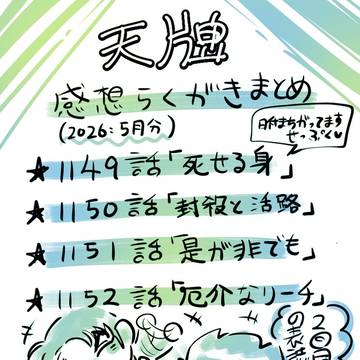 天牌
感想らくがきまとめ
(2026:5月分)
日付まちがってます
せっぷく
★1149話「死せる身」
★1150話「封殺と活路」
★1151話「是が非でも」
★1152話「厄介なリーチ」